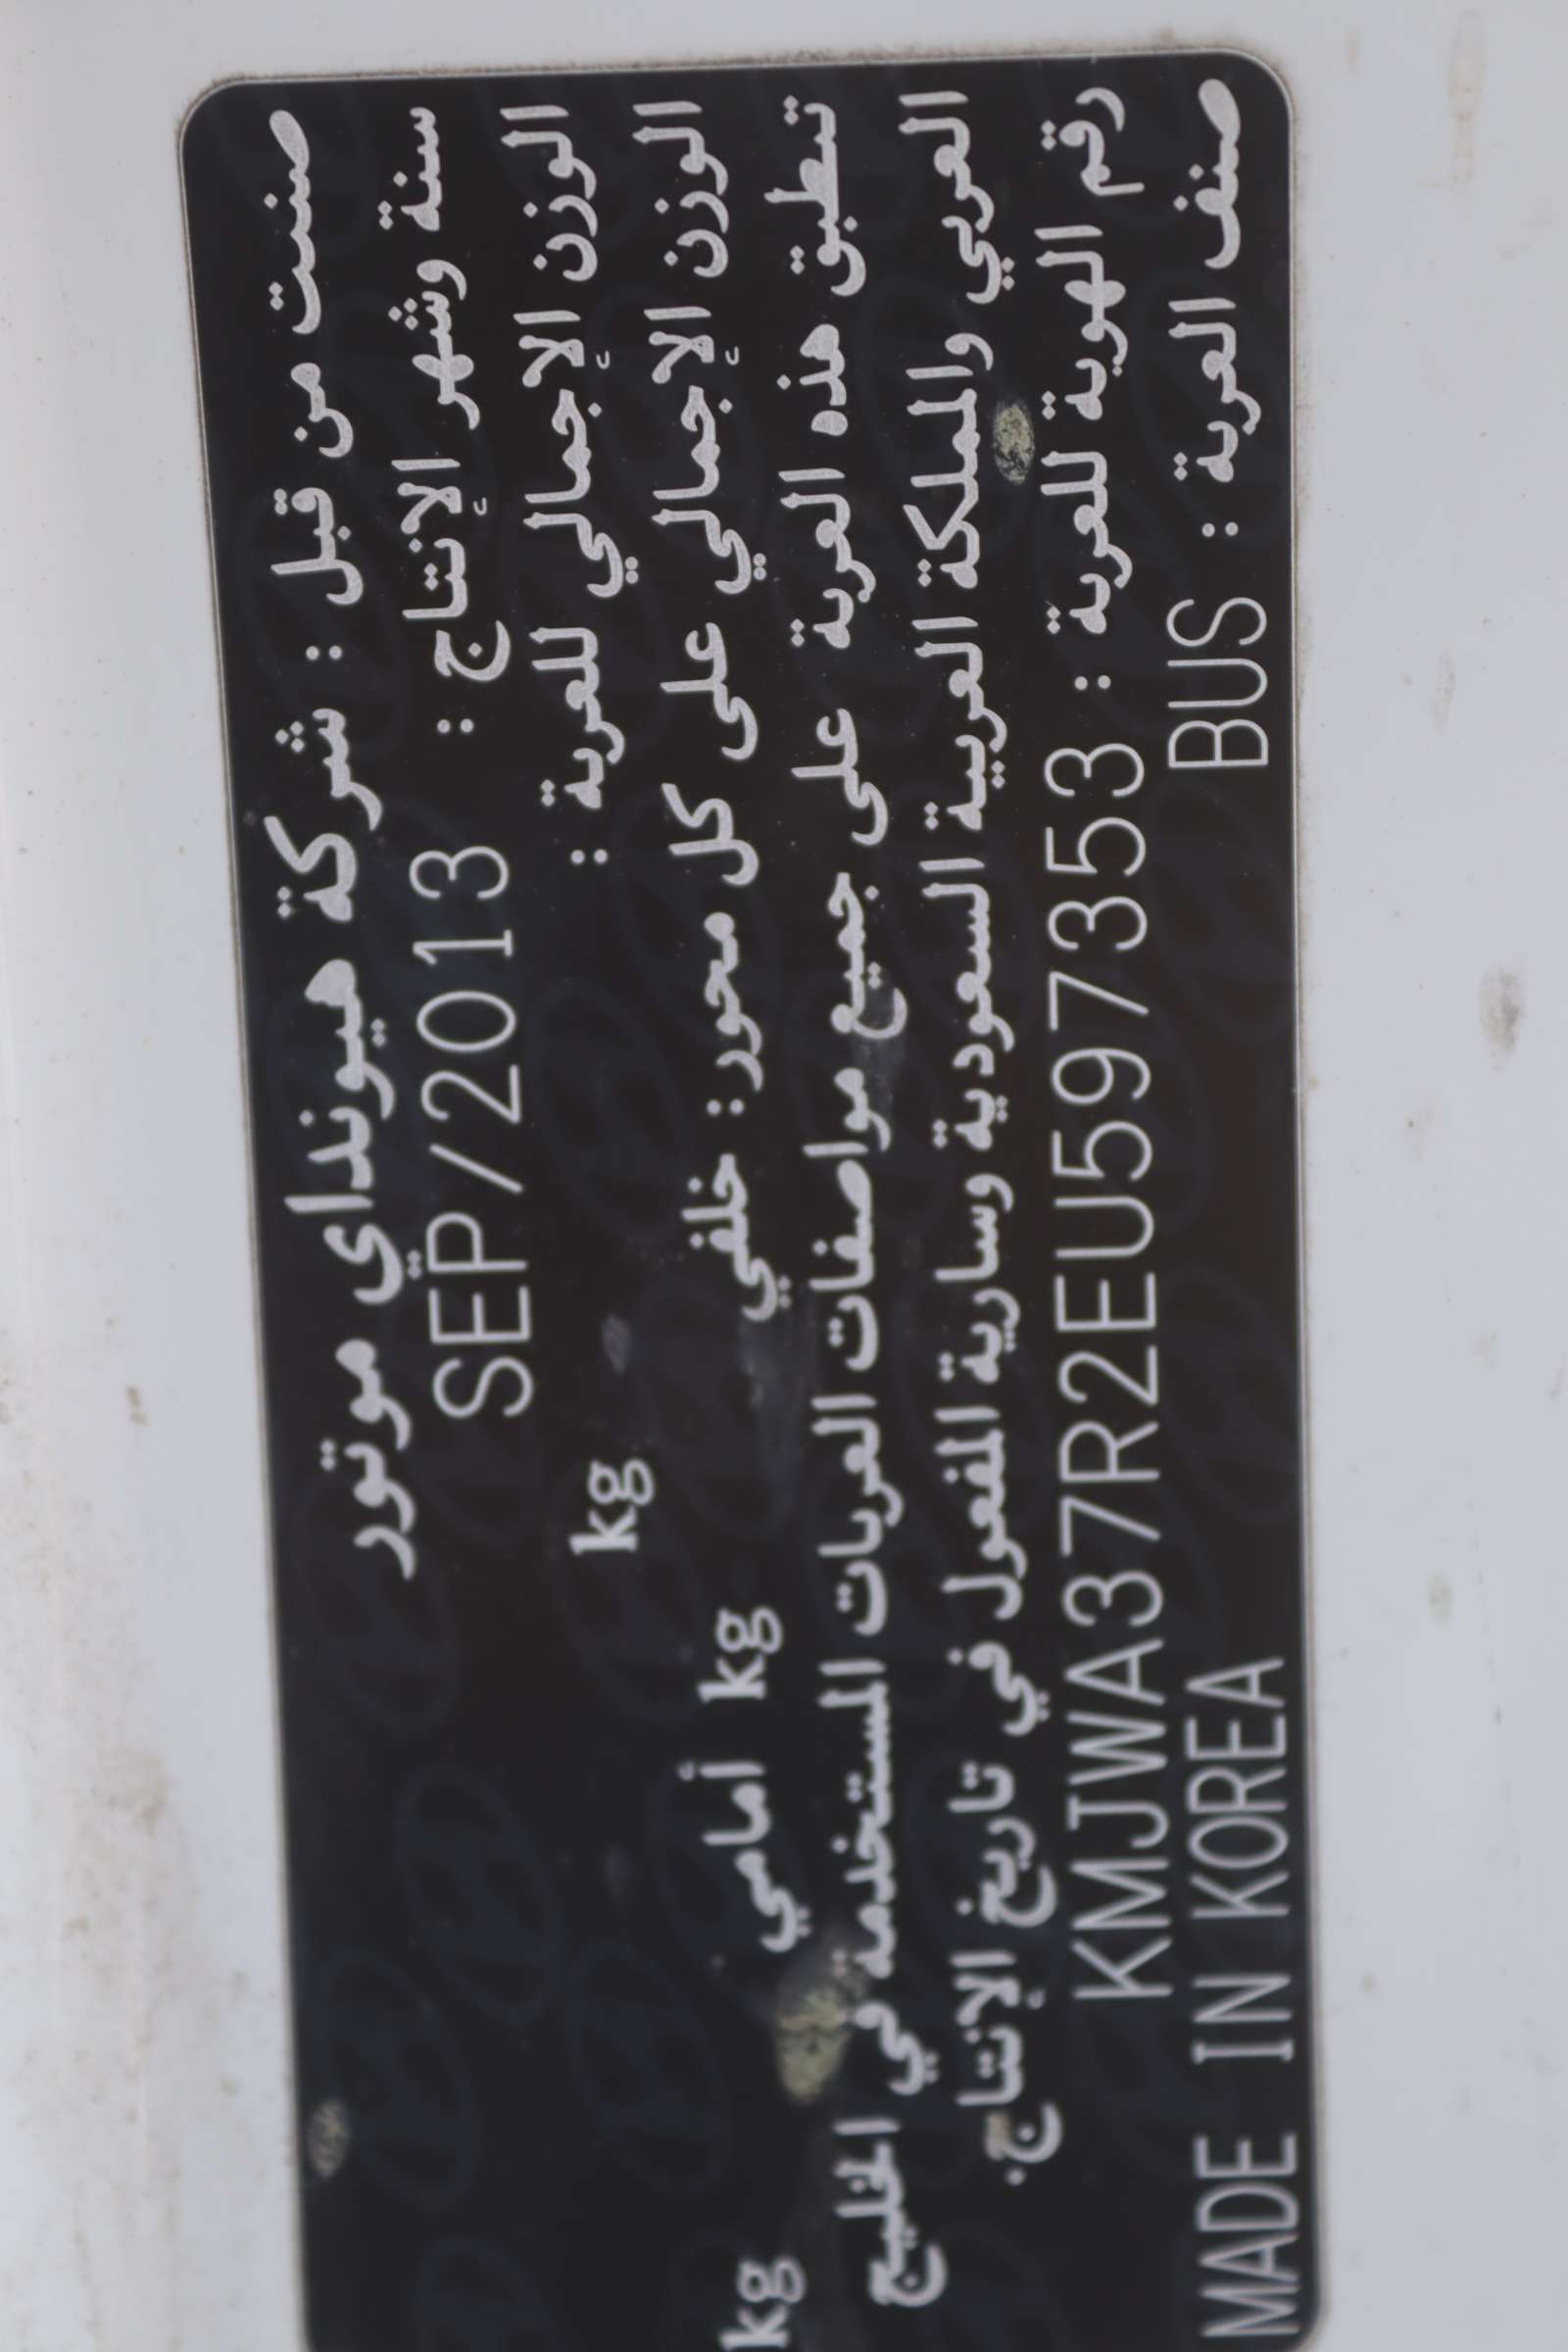 صنعت من قبل : شركة هيونداي موتور
سنة وشهر الإنتاج : SEP/2013
الوزن الإجمالي للعربة : kg
الوزن الإجمالي على كل محور: خلفي kg أمامي kg
تنطبق هذه العربة على جميع مواصفات العربات المستخدمة في الخليج
العربي والمملكة العربية السعودية وسارية المفعول في تاريخ الإنتاج.
رقم الهوية للعربة : KMJWA37R2EU597353
صنف العربة : BUS MADE IN KOREA